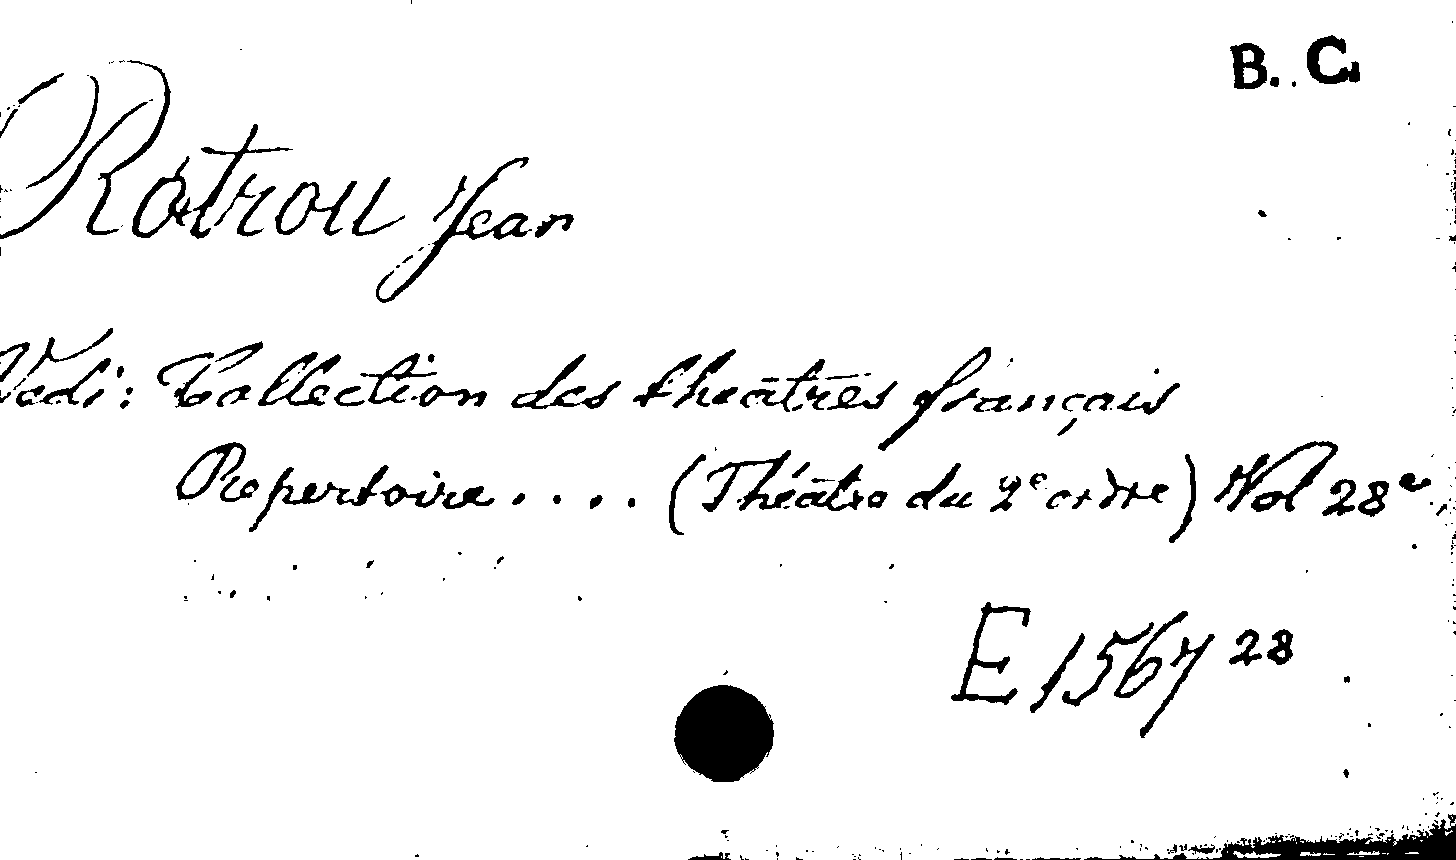 B. C.
Rotrou Jean
Vedi: Collection des theâtres français
Repertoire.... (Théâtre du 2e ordre) Vol 28e
E 1567 28